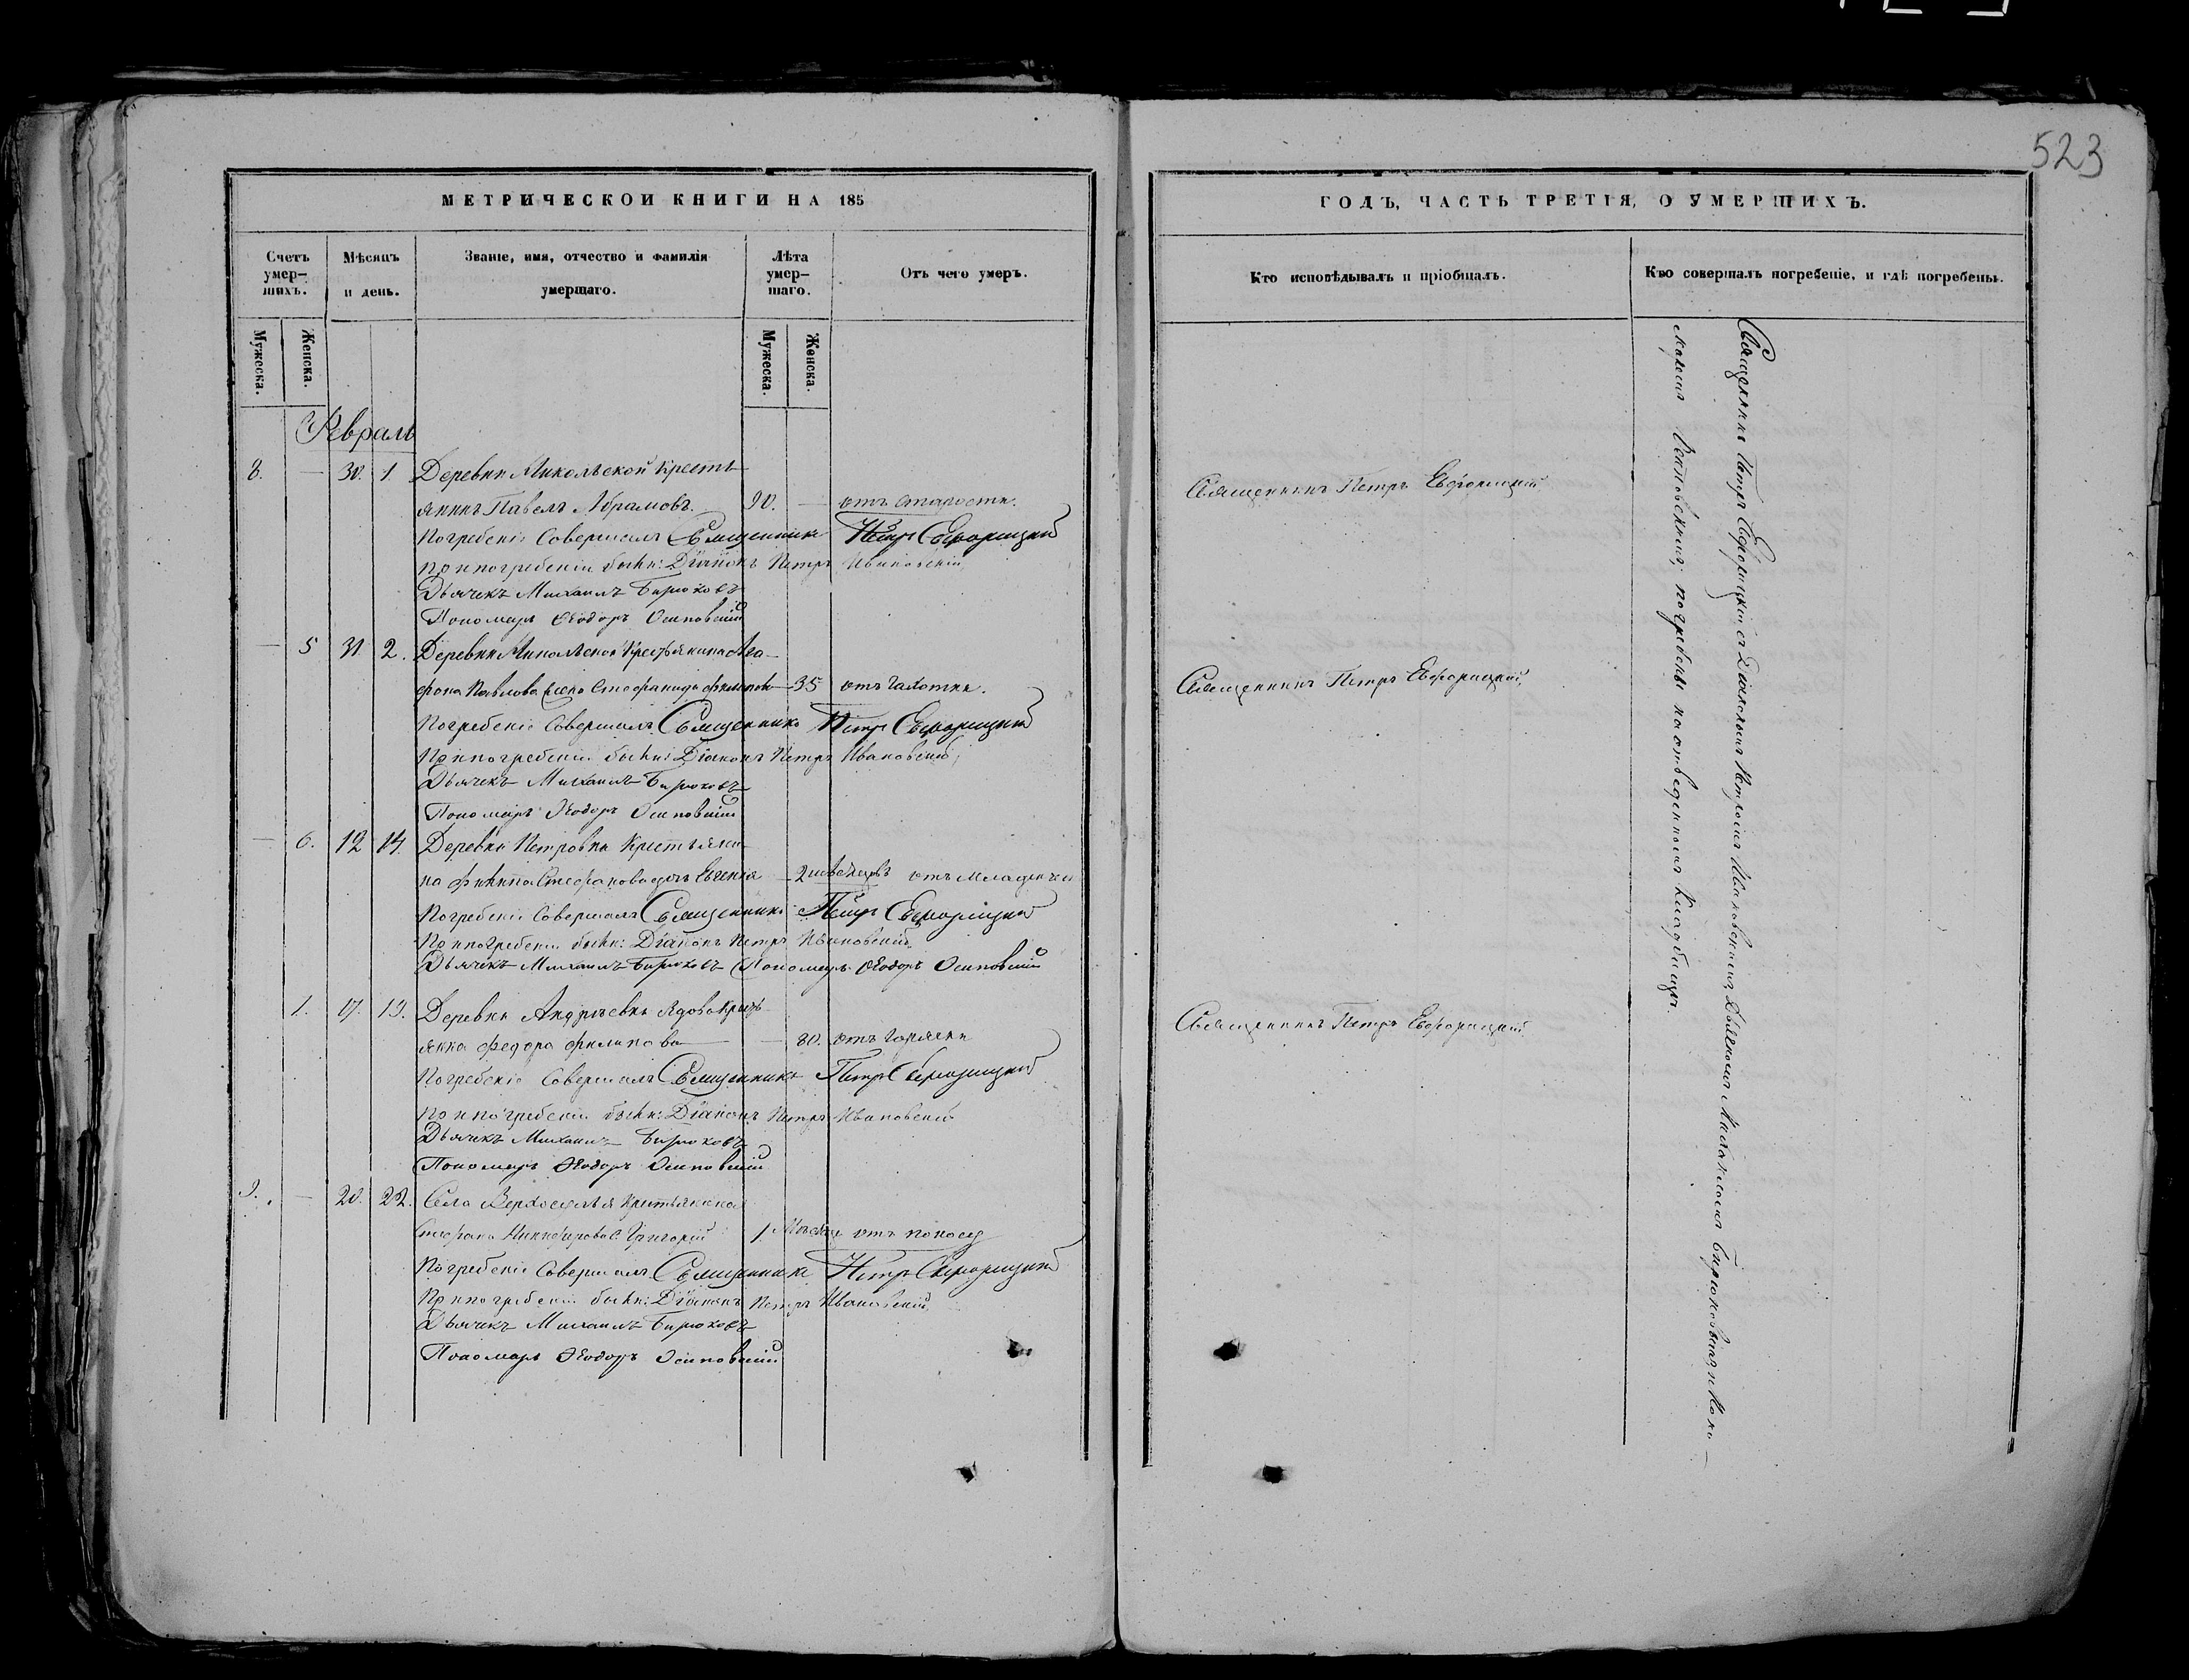 523
МЕТРИЧЕСКОЙ КНИГИ НА 185
ГОДЪ, ЧАСТЬ ТРЕТІЯ, О УМЕРШИХЪ.
Счетъ умер-шихъ.
Мѣсяцъ и день.
Званіе, имя, отчество и фамилія умершаго.
Лѣта умер-шаго.
Отъ чего умеръ.
Кто исповѣдывалъ и пріобщалъ.
Кто совершалъ погребеніе, и гдѣ погребены.
Мужеска.
Женска.
Мужеска.
Женска.
Февраль
8. — 30. 1. Деревни Никольской Кресть-
янинъ Павелъ Абрамовъ. 90. — отъ старости.
Священникъ Петръ
Погребеніе Совершалъ Священникъ Петръ
При погребеніи были: Діаконъ Петръ Ивановскій
Дьячекъ Михаилъ Бирюковъ
Пономарь Ѳеодоръ Осиповскій
— 5 31 2. Деревни Никольской Крестьянина Ага-
фона Павлова жена Стефанида Филипова — 35 отъ чахотки.
Священникъ Петръ
Погребеніе Совершалъ Священникъ Петръ
При погребеніи были: Діаконъ Петръ Ивановскій,
Дьячекъ Михаилъ Бирюковъ
Пономарь Ѳеодоръ Осиповскій
— 6. 12 14. Деревни Петровки Крестьяни-
на Филипа Стефанова дочь Евгенія — 2 отъ
Погребеніе Совершалъ Священникъ Петръ
При погребеніи были: Діаконъ Петръ Ивановскій
Дьячекъ Михаилъ Бирюковъ Пономарь Ѳеодоръ Осиповскій
Деревни Андреевки Вдова Кресть-
янка Федора Филипова — — 80. отъ горячки
Священникъ Петръ
Погребеніе Совершалъ Священникъ Петръ
При погребеніи были: Діаконъ Петръ Ивановскій
Дьячекъ Михаилъ Бирюковъ
Пономарь Ѳеодоръ Осиповскій
9. — 20. 22. Села Крестьянина
Стефана Никифорова С. Григорій 1 отъ поносу
Погребеніе Совершалъ Священникъ Петръ
При погребеніи были: Діаконъ Петръ Ивановскій,
Дьячекъ Михаилъ Бирюковъ
Пономарь Ѳеодоръ Осиповскій
Священникъ Петръ съ Діакономъ Петромъ Ивановскимъ, Дьячкомъ Михаиломъ Бирюковымъ, и Поно-
маремъ Осиповскимъ, погребены на отведенномъ Кладбищѣ.